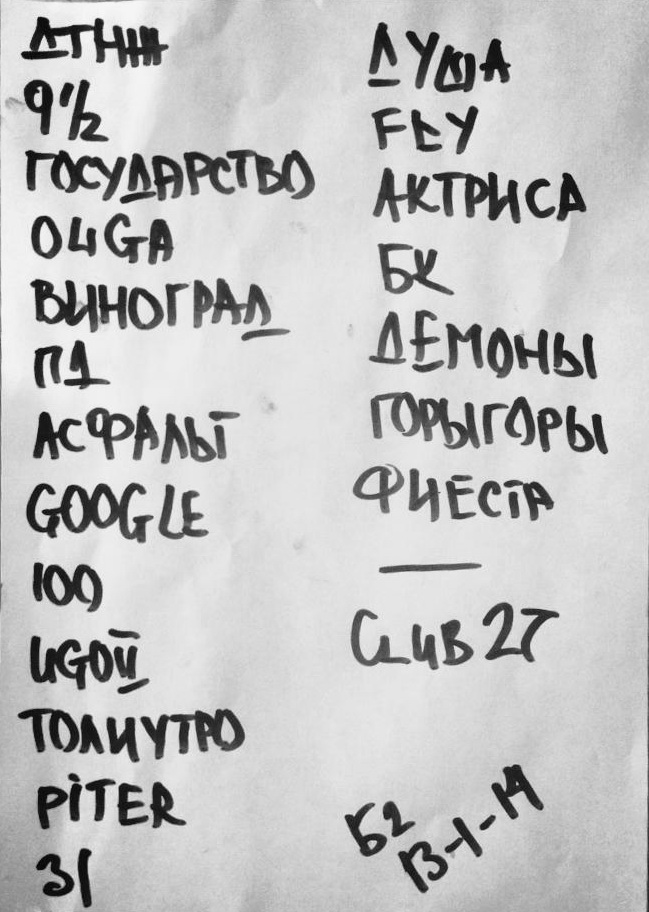 ДТНЖ
9½
ГОСУДАРСТВО
О4GA
ВИНОГРАД
П1
АСФАЛЬТ
GOOGLE
100
ИGОЙ
ТОЛИУТРО
PiTER
31
ДУША
FEY
АКТРИСА
БК
ДЕМОНЫ
ГОРЫГОРЫ
ФИЕСТА
CLUB 27
Б2
13-1-14